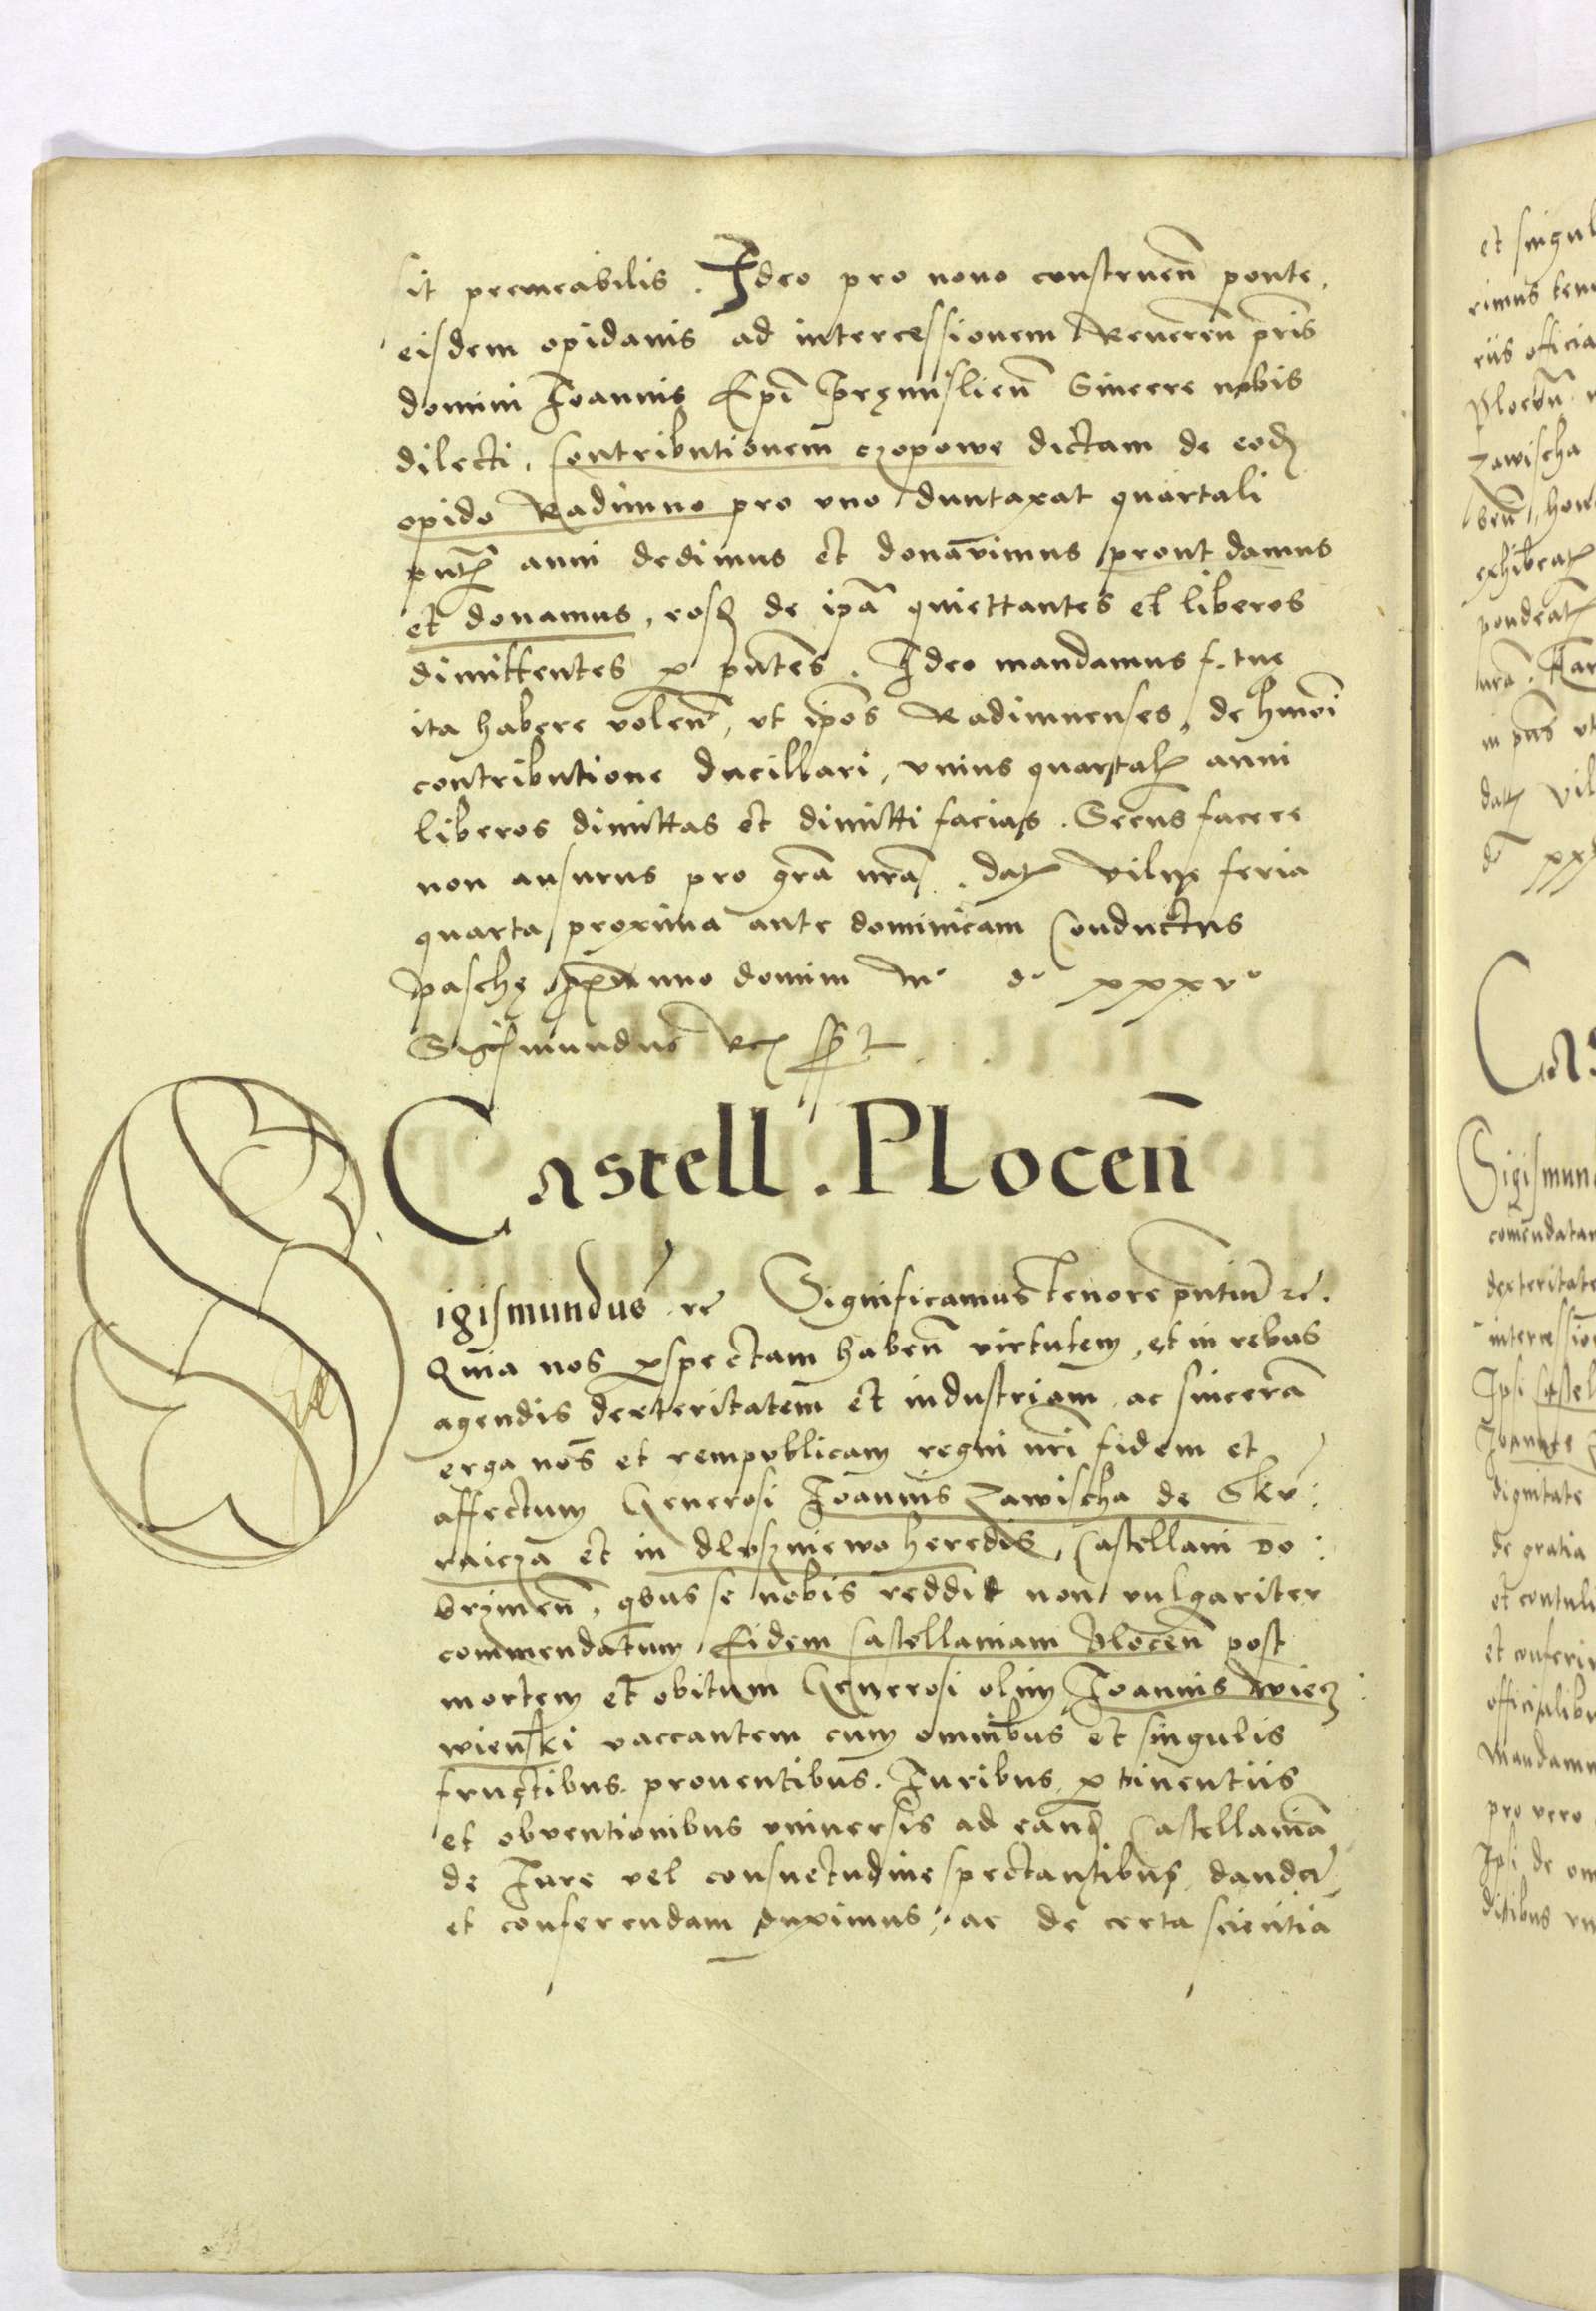 sit permeabilis. Ideo pro nouo construen̄ ponte,
eisdem opidanis ad intercessionem Reueren̄ pr̄is
domini Ioannis Ep̄i Pręmislien̄ Sincere nobis
dilecti, Contributionem czopowe dictam de eod̄
opido Radimno pro vno duntaxat quartali
pn̄tꝭ anni dedimus et donauimus prout damus
et donamus, eosd̄ de ip̄a quiettantes et liberos
dimittentes ꝑ pn̄tes. Ideo mandamus f. tue
ita habere volen̄, vt ip̄os Radimnenses, de hm̄oi
contributione ducillari, vnius quartalꝭ anni
liberos dimittas et dimitti facias. Secus facere
non ausurus pro gr̄a nr̄a. datꝭ Vilnę feria
quarta proxima ante dominicam Conductus
paschę Anno domini Mº dº xxxvº
Sigismundus Rex sst
Castell. Plocen̄
Sigismundus rc̄ Significamus tenore pn̄tium rc̄.
Quia nos ꝑspectam haben̄ virtutem, et in rebus
agendis dexteritatem et industriam, ac sincerā
erga nos et rempublicam regni nr̄i fidem et
affectum Generosi Ioannis Zawischa de Sku:
raicza et in dluszniewo heredis, Castellani Do:
brzinen̄, qbus se nobis reddidit non vulgariter
commendatum, Eidem Castellaniam Plocen̄ post
mortem et obitum Generosi olim Ioannis Wiecz:
wienski vaccantem cum omnibus et singulis
fructibus, prouentibus, Iuribus, ꝑtinentiis
et obuentionibus vniuersis ad eand̄ Castellaniā
de Iure vel consuetudine spectantibus, dandā
et conferendam duximus, ac de certa scientia
et singul
rimus ten
riis officia
Plocen̄
Zawischa
exhibeatꝭ
pondeatꝭ
nr̄a.
datꝭ Vil
Cas
Sigismun
comendatam
dexteritate
intercession
Ipsi Castel
Ioannis
dignitate
de gratia
et contuli
et conferi
officialibu
Mandamu
pro vero
Ipsi de om
ditibus vn